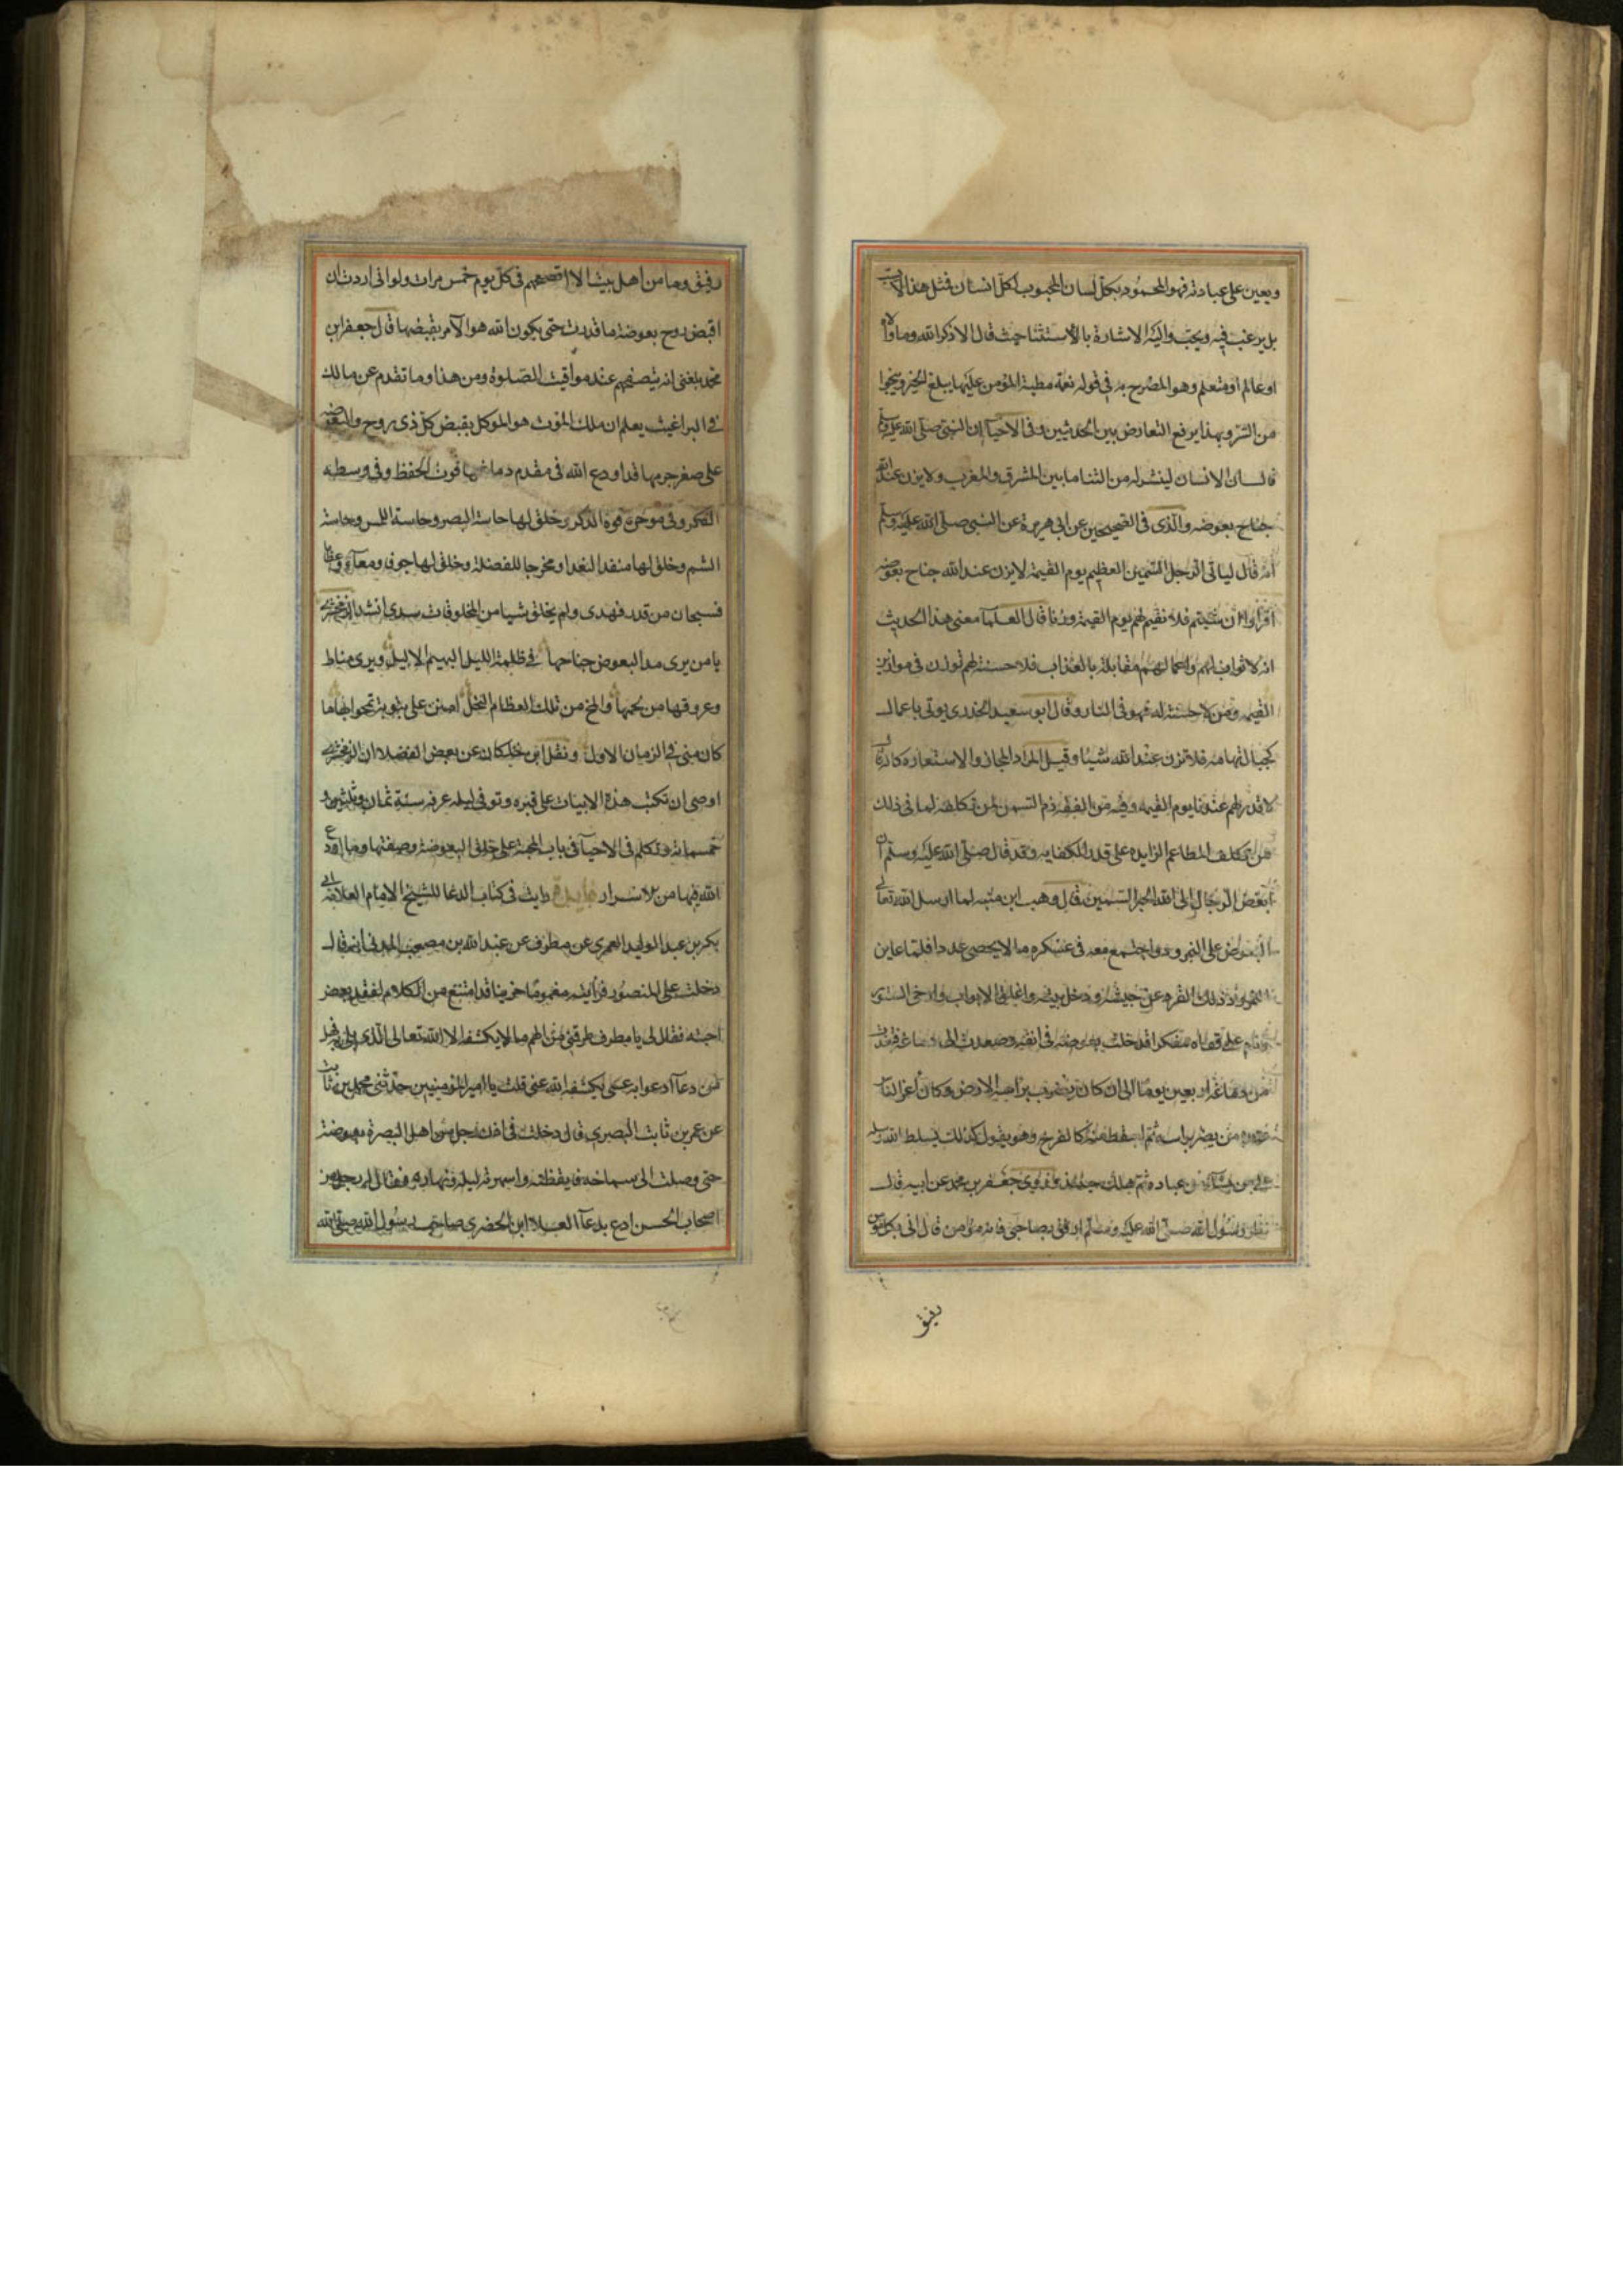 ويعين على عبادته فهو المحمود بكل لسان المحبوب لكل انسان فمثل هذا لا يسب
بل يرغب فيه ويحب واليه الاشارة بالاستثنا حيث قال الا ذكر الله وما والاه
او عالم او متعلم وهو المصرح به في قوله نعم مطية المؤمن عليها يبلغ الخير وينجوا
من الشر وبهذا يرفع التعارض بين الحديثين وفى الاحيآ ان النبي صلى الله عليه وسلم
قال ان الانسان لينشر له من الثنا ما بين المشرق والمغرب ولا يزن عند الله
جناح بعوضه والذى فى الصحيحين عن ابى هريرة عن النبي صلى الله عليه وسلم
انه قال لياتى الرجل السمين العظيم يوم القيمة لا يزن عند الله جناح بعوضه
اقرأوا ان شيتم فلا نقيم لهم يوم القيمة وزنا قال العلمآ معنى هذا الحديث
انه لا ثواب لهم واعمالهم مقابلة بالعذاب فلا حسنة لهم توزن فى موازين
القيمه ومن لا حسنة له فهو فى النار وقال ابو سعيد الخدرى يوتى باعمال
كجبال تهامه فلا تزن عند الله شيئا وقيل المراد المجاز والاستعاره كانه قال
لا قدر لهم عندنا يوم القيمه وفيه من الفقه ذم السمن لمن تكلفه لما فى ذلك
من تكلف المطاعم الزايده على قدر الكفايه وقد قال صلى الله عليه وسلم ان
ابغض الرجال الى الله الحبر السمين قال وهب ابن منبه لما ارسل الله تعالى
البعوض على النمرود واجتمع معه فى عسكره ما لا يحصى عددا فلما عاين
النمرود ذلك انفرد عن جيشه ودخل بيته واغلق الابواب وارخى الستور
ونام على قفاه مفكرا فدخلت بعوضه فى انفه وصعدت الى دماغه فعذبت
من دماغه اربعين يوما الى ان كان يضرب براسه الارض وكان اعز الناس
عنده من يضرب راسه ثم سقط منه كالفرخ وهو يقول كذلك يسلط الله رسله
على من يشآء من عباده ثم هلك حينئذ وروى جعفر بن محمد عن ابيه قال
نظر رسول الله صلى الله عليه وسلم ارفق بصاحبى فانه مؤمن قال انى بكل مؤمن
رفيق
رفيق وما من اهل بيت الا اتصفحهم فى كل يوم خمس مرات ولو انى اردت ان
اقبض روح بعوضة ما قدرت حتى يكون الله هو الآمر بقبضها قال جعفر ابن
محمد بلغنى انه يتصفحهم عند مواقيت الصلوة ومن هذا وما تقدم عن مالك
فى البراغيث يعلم ان ملك الموت هو الموكل بقبض كل ذى روح والبعوضه
على صغر جرمها قد اودع الله فى مقدم دماغها قوت الحفظ وفى وسطه
الفكر وفى موخره قوة الذكر وخلق لها حاسة البصر وحاسة اللمس وحاسة
الشم وخلق لها منفذا للغدا ومخرجا للفضلة وخلق لها جوفا ومعآء وعظاما
فسبحان من قدر فهدى ولم يخلق شيا من المخلوقات سدى انشد الزمخشرى
يا من يرى مد البعوض جناحها فى ظلمة الليل البهيم الاليل ويرى مناط
وعروقها من لحمها والمخ من تلك العظام النحل امنن على بتوبة تمحوا بها ما
كان منى فى الزمان الاول ونقل ابن خلكان عن بعض الفضلا ان الزمخشرى
اوصى ان تكتب هذه الابيات على قبره وتوفى ليله عرفه سنة ثمان وثلثين و
خمسمائة وتكلم فى الاحيآ فى باب المحبة على خلق البعوضة وصفتها وما اودع
الله فيها من الاسرار فايدة رايت فى كتاب الدعا للشيخ الامام العلامه ابى
بكر بن عبد الوليد العمرى عن مطرف عن عبد الله بن مصعب المدنى انه قال
دخلت على المنصور فرأيته مغموما حزينا قد امتنع من الكلام لفقد بعض
احبته فقال لى يا مطرف طرقنى من الهم ما لا يكشفه الا الله تعالى الذى بلى به فهل
من دعآ ادعوا به عسى يكشفه الله عنى قلت يا امير المؤمنين حدثنى محمد بن ثابت
عن عمر بن ثابت البصرى قال دخلت فى اذن رجل من اهل البصرة بعوضة
حتى وصلت الى سماخه فايقظته واسهرته ليله ونهاره فقال له رجل من
اصحاب الحسن ادع بدعآ العلا ابن الحضرى صاحب رسول الله صلى الله